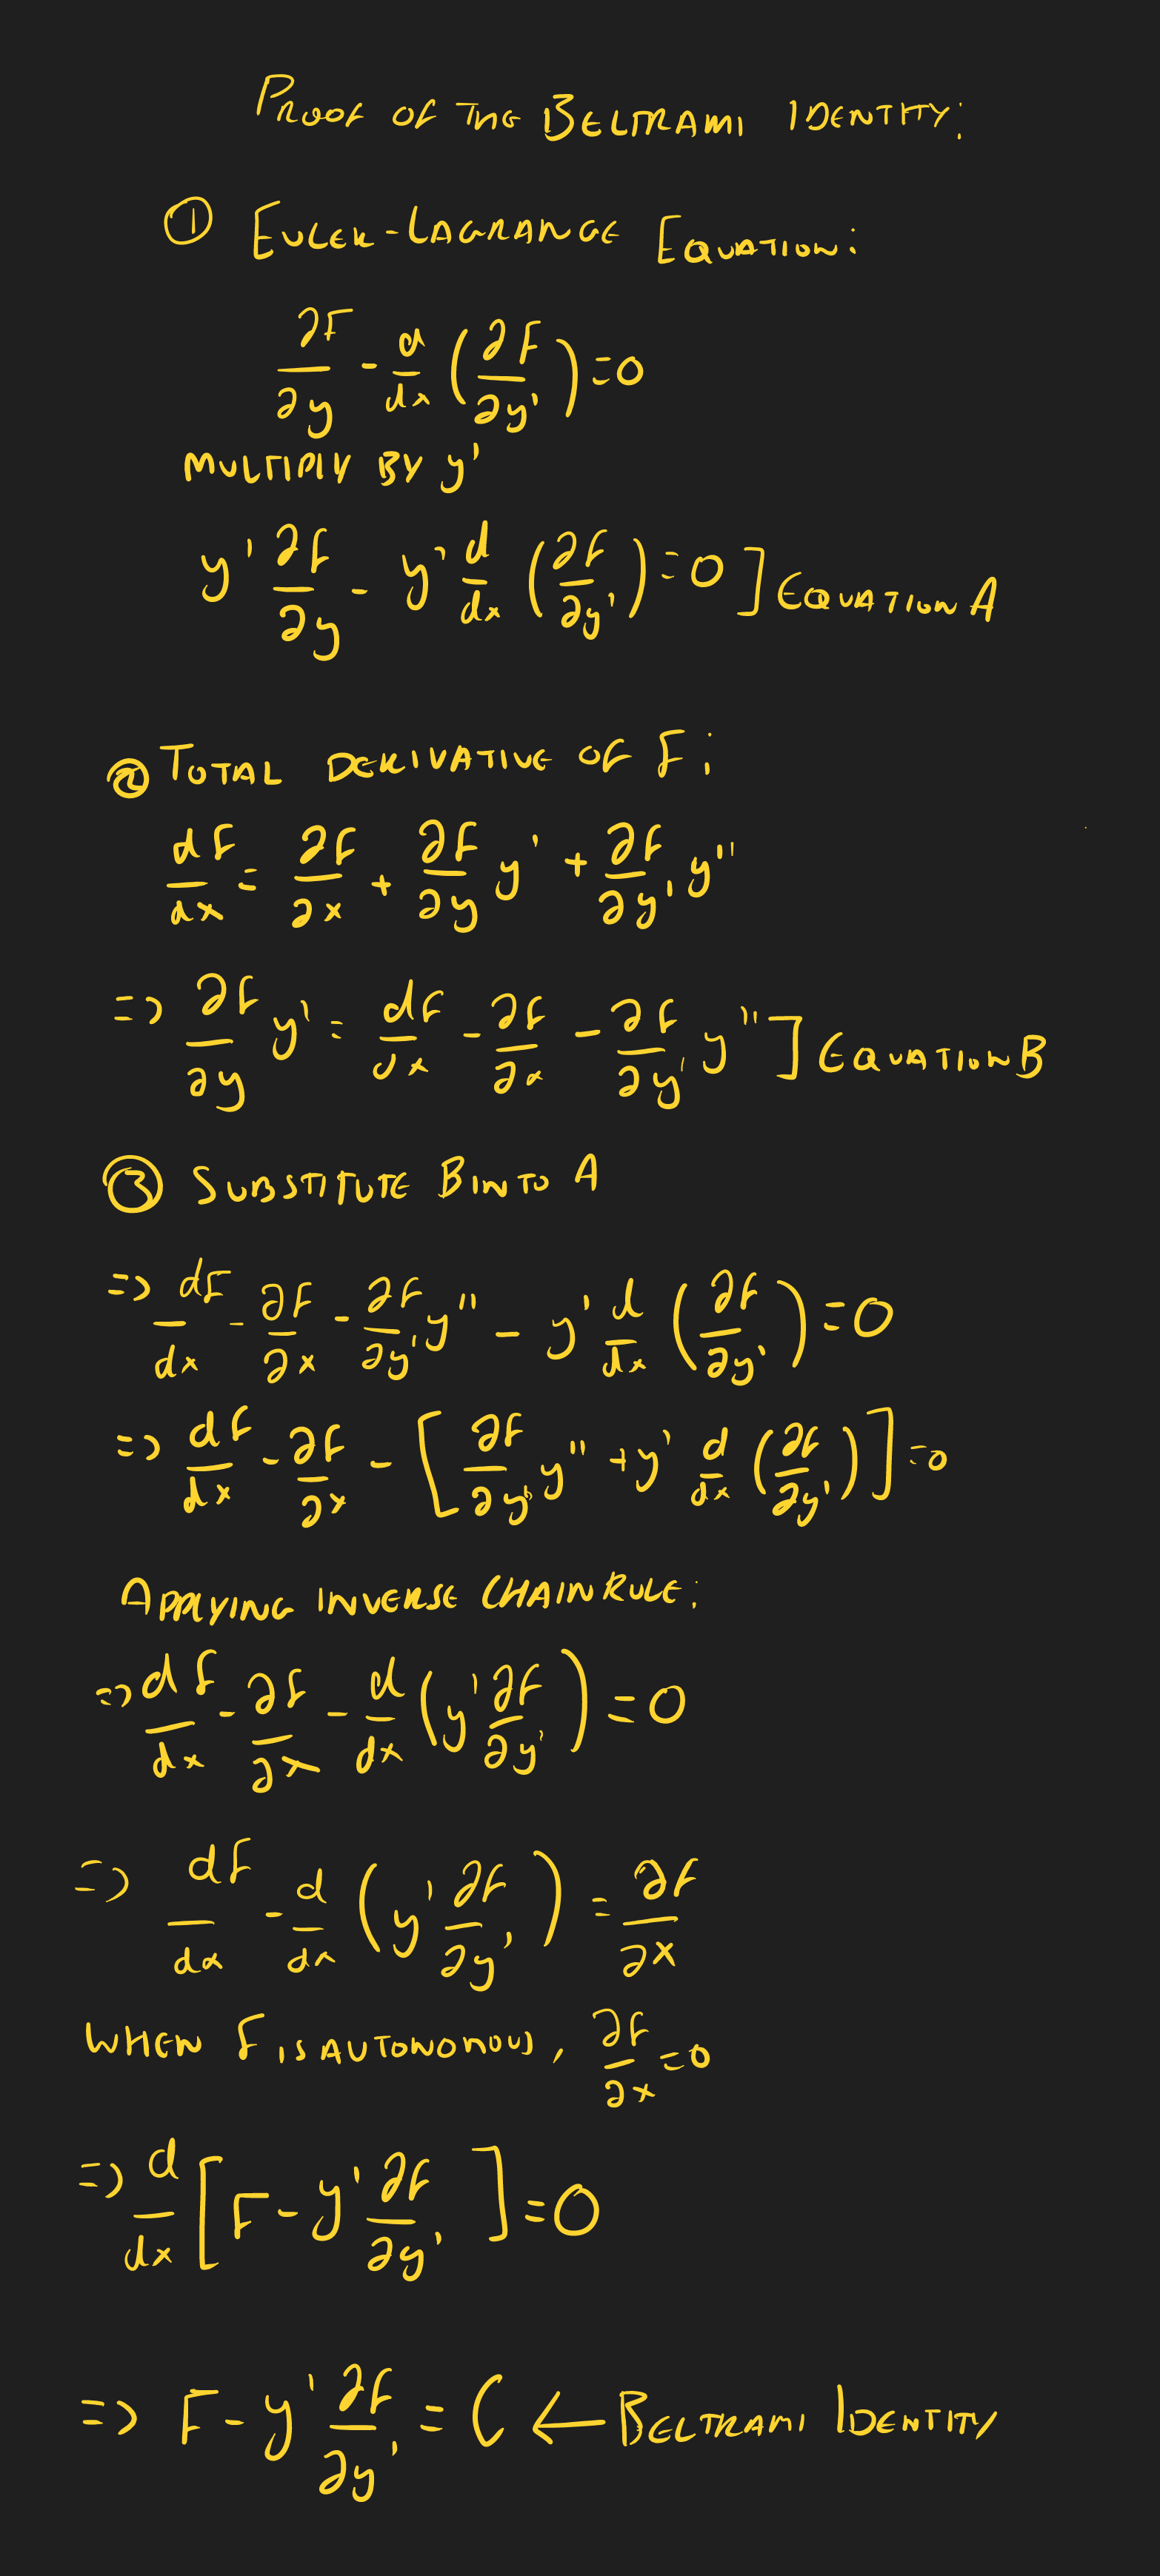 PROOF OF THE BELTRAMI IDENTITY:
① EULER-LAGRANGE EQUATION:
∂F/∂y - d/dx (∂F/∂y') = 0
MULTIPLY BY y'
y' ∂F/∂y - y' d/dx (∂F/∂y') = 0 ] EQUATION A
② TOTAL DERIVATIVE OF F:
dF/dx = ∂F/∂x + ∂F/∂y y' + ∂F/∂y' y''
=> ∂F/∂y y' = dF/dx - ∂F/∂x - ∂F/∂y' y'' ] EQUATION B
③ SUBSTITUTE B INTO A
=> dF/dx - ∂F/∂x - ∂F/∂y' y'' - y' d/dx (∂F/∂y') = 0
=> dF/dx - ∂F/∂x - [ ∂F/∂y' y'' + y' d/dx (∂F/∂y') ] = 0
APPLYING INVERSE CHAIN RULE:
=> dF/dx - ∂F/∂x - d/dx (y' ∂F/∂y') = 0
=> dF/dx - d/dx (y' ∂F/∂y') = ∂F/∂x
WHEN F IS AUTONOMOUS, ∂F/∂x = 0
=> d/dx [ F - y' ∂F/∂y' ] = 0
=> F - y' ∂F/∂y' = C ← BELTRAMI IDENTITY